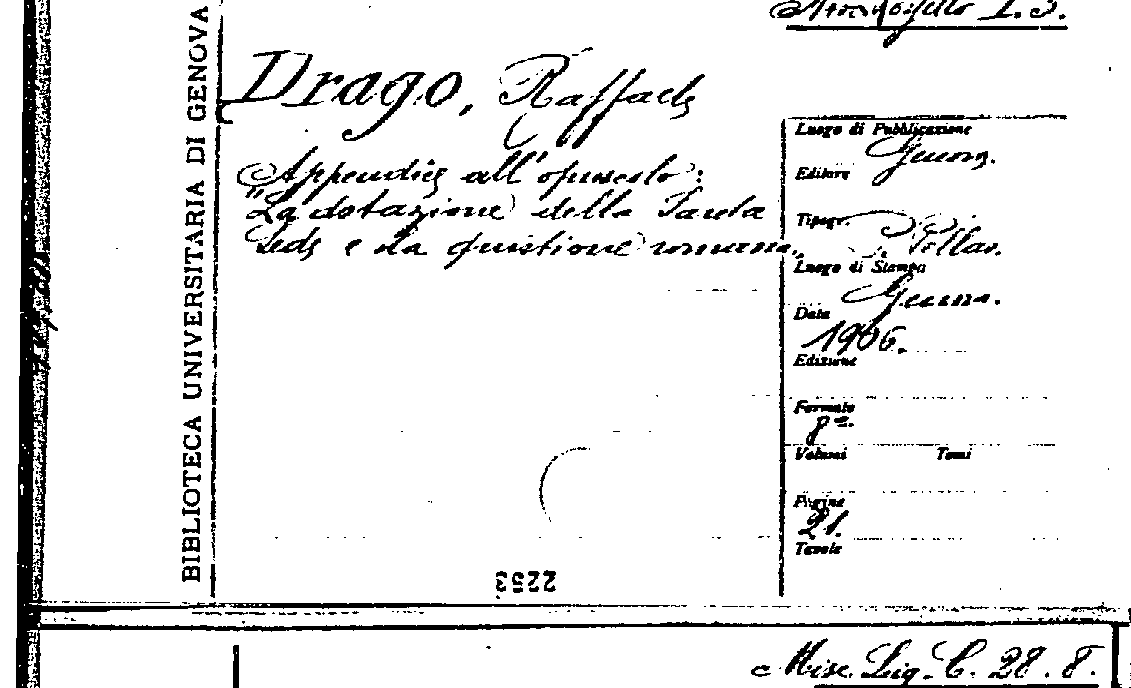 I. 3.
BIBLIOTECA UNIVERSITARIA DI GENOVA
Drago, Raffaele
Appendice all'opuscolo:
"La dotazione della Santa
Sede e la quistione romana„
Luogo di Pubblicazione
Genova.
Editore
Tipogr.
Luogo di Stampa
Genova.
Data
1906.
Edizione
Formato
8º.
Volumi Tomi
Pagine
21.
Tavole
2253
Misc. Lig. C. 28. 8.